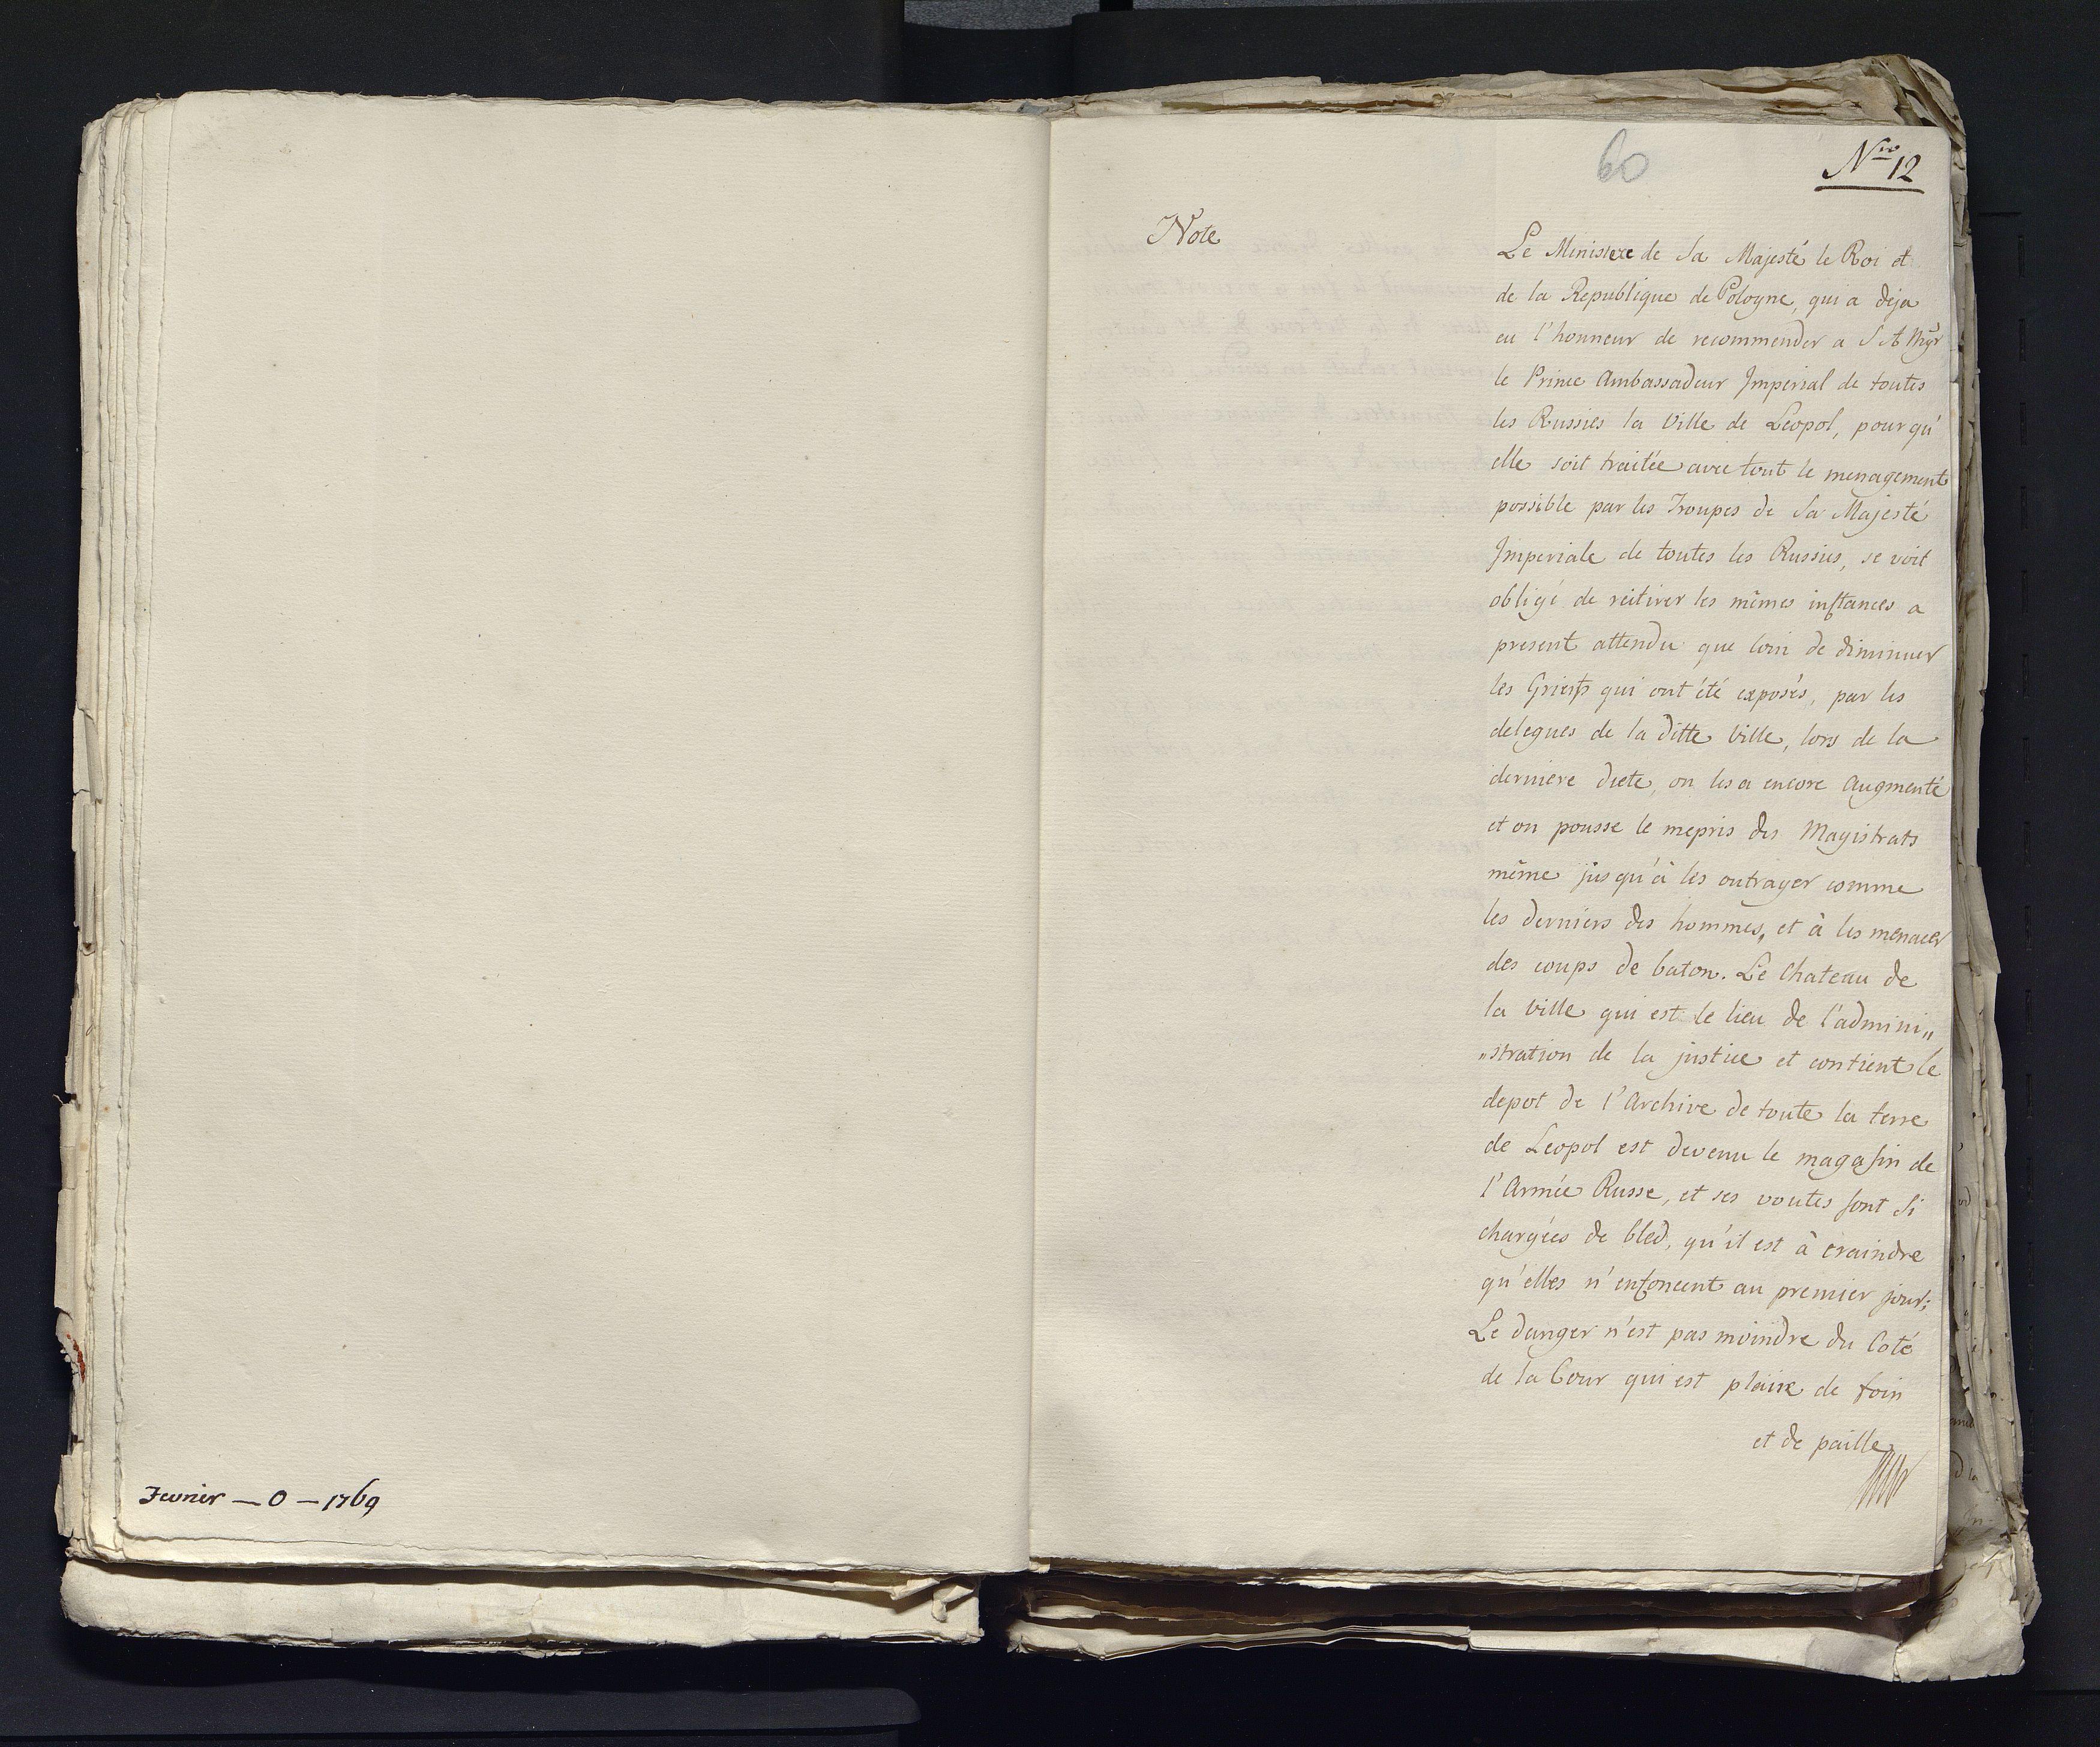 Fevrier — 0 — 1769
60
Nro 12
Note
Le Ministere de Sa Majesté le Roi et
de la Republique de Pologne, qui a deja
eu l'honneur de recommender a S A Mgr
le Prince Ambassadeur Imperial de toutes
les Russies la Ville de Leopol, pour qu'
elle soit traitée avec tout le menagement
possible par les Troupes de Sa Majesté
Imperiale de toutes les Russies, se voit
obligé de reiterer les mêmes instances a
present attendu que loin de diminuer
les Griefs qui ont été exposés, par les
delegues de la ditte Ville, lors de la
derniere diete, on les a encore augmenté
et on pousse le mepris des Magistrats
même jusqu'à les outrager comme
les derniers des hommes, et à les menacer
des coups de baton. Le Chateau de
la Ville qui est le lieu de l'admini„
„stration de la justice et contient le
depot de l'Archive de toute la terre
de Leopol est devenu le magasin de
l'Armée Russe, et ses voutes sont si
chargées de bled, qu'il est à craindre
qu'elles n'enfoncent au premier jour;
Le danger n'est pas moindre du Coté
de la Cour qui est pleine de foin
et de paille